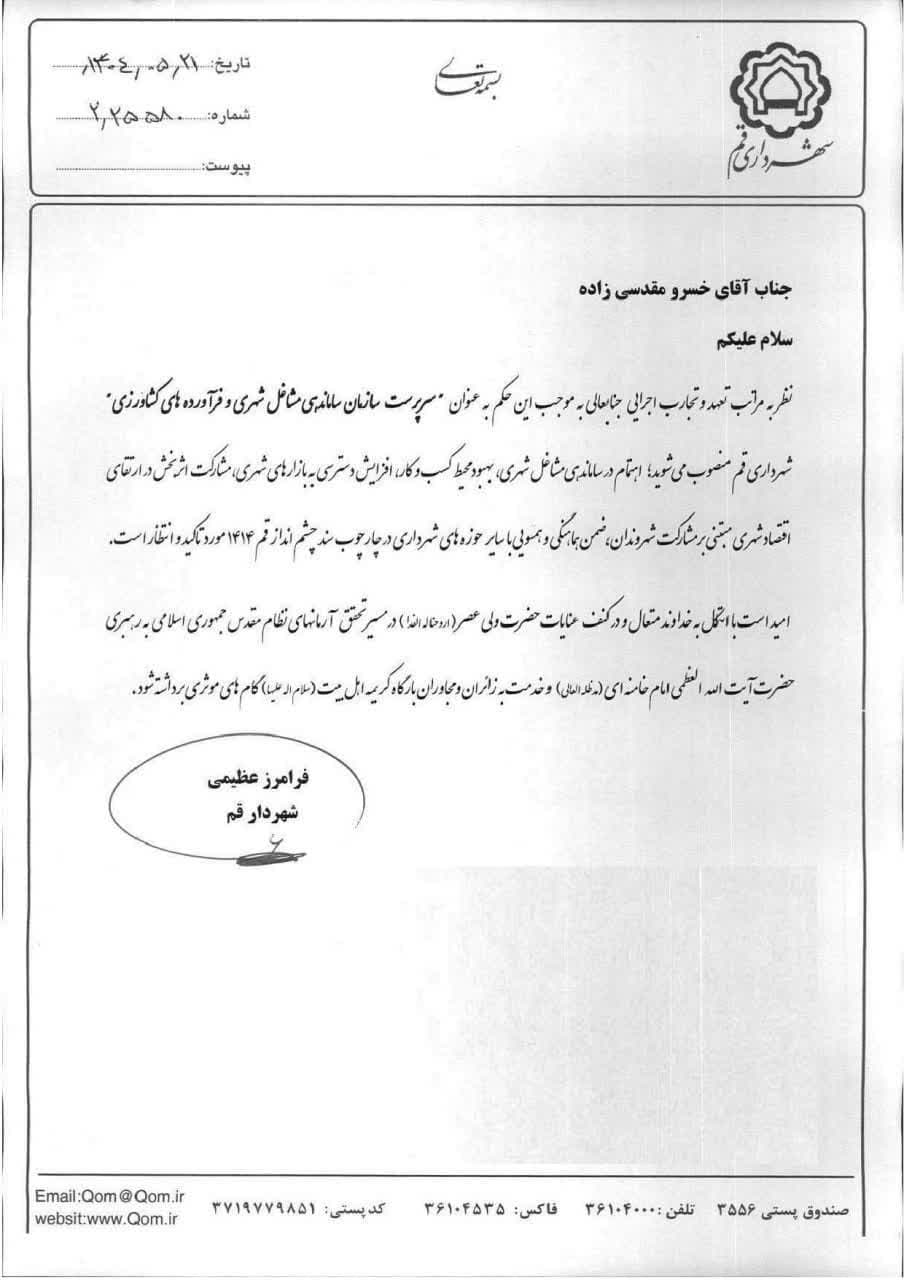 بسمه تعالی
شهرداری قم
تاریخ: ۱۴۰۴،۰۵،۲۱
شماره: ۲،۲۵۵۸۰
پیوست:
جناب آقای خسرو مقدسی زاده
سلام علیکم
نظر به مراتب تعهد و تجارب اجرایی جنابعالی به موجب این حکم به عنوان "سرپرست سازمان ساماندهی مشاغل شهری و فرآورده های کشاورزی"
شهرداری قم منصوب می شوید؛ اهتمام در ساماندهی مشاغل شهری، بهبود محیط کسب و کار، افزایش دسترسی به بازارهای شهری، مشارکت اثربخش در ارتقای
اقتصاد شهری مبتنی بر مشارکت شهروندان، ضمن هماهنگی و همسویی با سایر حوزه های شهرداری در چارچوب سند چشم انداز قم ۱۴۱۴ مورد تاکید و انتظار است.
امید است با اتکال به خداوند متعال و در کنف عنایات حضرت ولی عصر (ارواحناله الفدا) در مسیر تحقق آرمانهای نظام مقدس جمهوری اسلامی به رهبری
حضرت آیت الله العظمی امام خامنه ای (مدظله العالی) و خدمت به زائران و مجاوران بارگاه کریمه اهل بیت (سلام اله علیها) گام های موثری برداشته شود.
فرامرز عظیمی
شهردار قم
صندوق پستی ۳۵۵۶ تلفن: ۳۶۱۰۴۰۰۰ فاکس: ۳۶۱۰۴۵۳۵ کدپستی: ۳۷۱۹۷۷۹۸۵۱
Email:Qom@Qom.ir
websit:www.Qom.ir